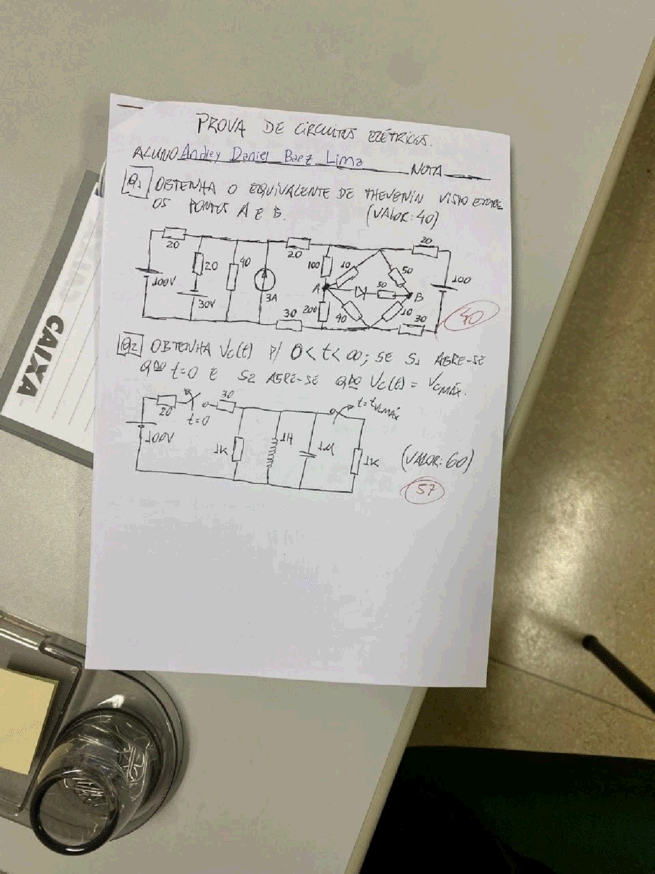 PROVA DE CIRCUITOS ELÉTRICOS.
ALUNO Andrey Daniel Baez Lima NOTA
Q1 OBTENHA O EQUIVALENTE DE THEVENIN VISTO ENTRE
OS PONTOS A E B. (VALOR: 40)
20 20 20
20 40 100 10 50
100V 3A A 50 B 100
30V 200 40 10
30 30
40
Q2 OBTENHA Vc(t) P/ 0<t<∞; SE S1 ABRE-SE
QDO t=0 E S2 ABRE-SE QDO Vc(t) = Vcmáx.
20 t=0 30 t=tVcmáx
100V 1K 1H 1M 1K (VALOR: 60)
57
CAIXA